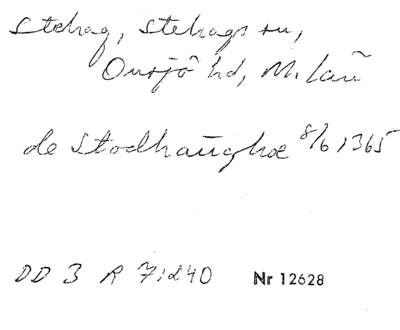 Stehag, Stehags sn,
Onsjö hd, M. län
de Stodhaughæ 8/6 1365
DD 3 R 7:240 Nr 12628